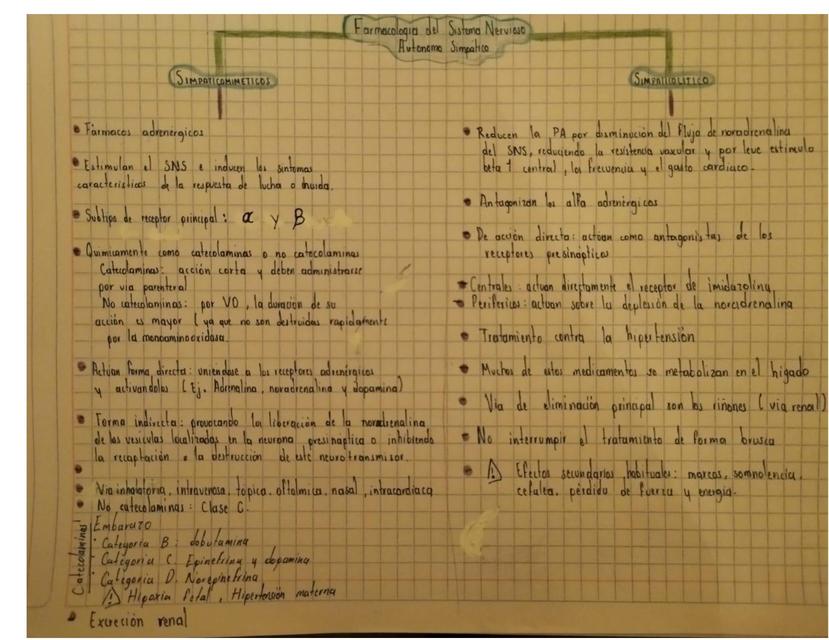 Farmacología del Sistema Nervioso
Autonomo Simpatico
SIMPATICOMIMETICOS
• Farmacos adrenergicos
• Estimulan el SNS e inducen los sintomas
caracteristicos de la respuesta de lucha o huida.
• Subtipo de receptor principal: α y β
• Quimicamente como catecolaminas o no catecolaminas
Catecolaminas: acción corta y deben administrarse
por via parenteral
No catecolaminas: por VO, la duración de su
acción es mayor (ya que no son destruidas rapidamente
por la monoaminooxidasa.
• Actúan forma directa: uniendose a los receptores adrenergicos
y activandolos (Ej. Adrenalina, noradrenalina y dopamina)
• Forma indirecta: provocando la liberación de la noradrenalina
de las vesiculas localizadas en la neurona presinaptica o inhibiendo
la recaptación o la destrucción de este neurotransmisor.
•
• Via inhalatoria, intravenosa, topica, oftalmica, nasal, intracardiaca
• No catecolaminas: Clase C.
Catecolaminas
Embarazo
• Categoria B: dobutamina
• Categoria C. Epinefrina y dopamina
• Categoria D. Norepinefrina
⚠ Hipoxia fetal, Hipertensión materna
• Excreción renal
SIMPATICOLITICO
• Reducen la PA por disminución del flujo de noradrenalina
del SNS, reduciendo la resistencia vascular y por leve estimulo
beta 1 central, la frecuencia y el gasto cardiaco.
• Antagonizan los alfa adrenergicos
• De acción directa: actúan como antagonistas de los
receptores presinapticos
• Centrales: actuan directamente el receptor de imidazolina
• Perifericos: actuan sobre la depleción de la noradrenalina
• Tratamiento contra la hipertensión
• Muchos de estos medicamentos se metabolizan en el higado
• Via de eliminación principal son los riñones (via renal)
• No interrumpir el tratamiento de forma brusca
• ⚠ Efectos secundarios habituales: mareos, somnolencia,
cefalea, perdida de fuerza y energia.